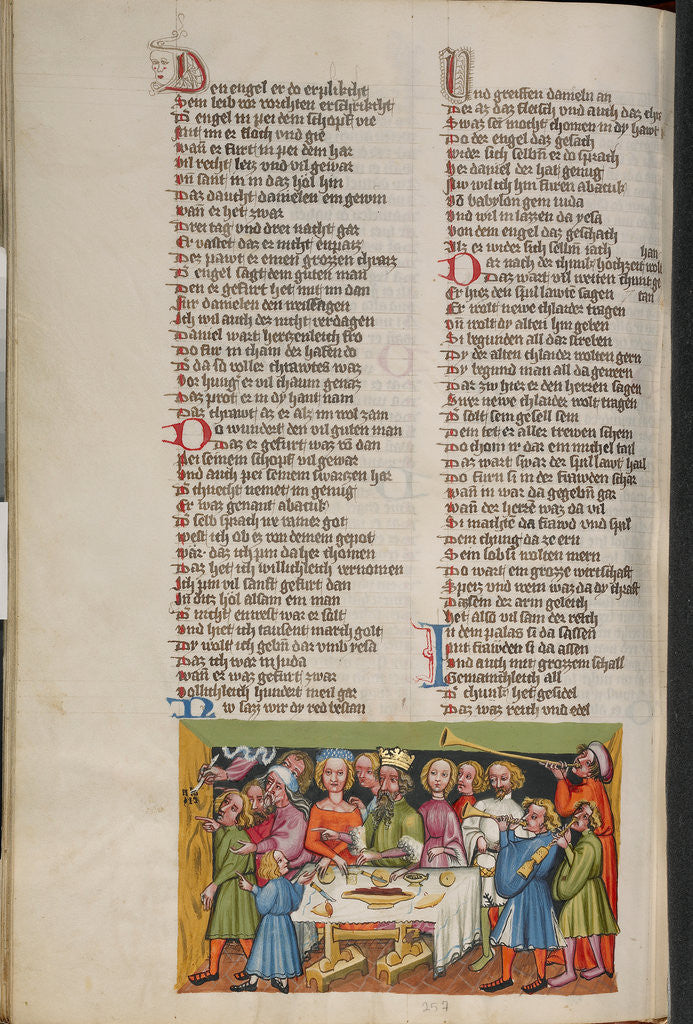 Den engel er do erplikcht
Sein leib vor vorchten erschrikcht
Der engel in pei dem schopf vie
Mit im er floch vnd gie
Wan er fürt in pei dem har
Vil recht letz vnd vil gewar
Vn sant in in daz hol hin
Daz daucht danielen ein gewin
Wan er het zwar
Drei tag vnd drei nacht gar
Er vastet daz er nicht enpaiz
Der pawt er einen grozzen chraiz
Der engel sagt dem guten man
Den er gefürt het mit im dan
Für danielen den weissagen
Ich wil auch der nicht verdagen
Daniel wart hertzenleich fro
Do für in cham der hafen do
Der da so voller chrawtes waz
Vor hung er vil chaum genaz
Daz prot er in dy hant nam
Daz chrawt az er alz im wol zam
Do wundert den vil guten man
Daz er gefürt waz von dan
Pei seinem schopf vil gewar
Vnd auch pei seinem swartzen har
Der chnecht nemet im genüg
Er waz genant abacuk
Der selb sprach
west ich ob ez von deinem gepot
wär daz ich pin da her chomen
Daz het ich willichleich vernomen
Ich pin vil sanft gefürt dan
In ditz hol alsam ein man
Der nicht enwest war er solt
Vnd hiet ich tausent march golt
Dy wolt ich gebn dar vmb yesa
Daz ich war in Juda
Wan er waz gefürt zwar
Vollichleich hundert meil gar
Nw lazz wir dy red bestan
Vnd greiffen danieln an
Der az daz fleisch vnd auch daz
Swaz ser mocht chomen in dy hawt
Do der engel daz gesach
Wider sich selbm er do sprach
Her daniel der hat genüg
Nw wil ich hin füren abacuk
Von babylon gem iuda
Vnd wil in lazzen da yesa
Von dem engel daz geschach
Alz er wider sich selbm iach
Dar nach der chunk hochzeit wolt han
Daz wart vil weiten chunt getan
Er hiez den spil lawte sagen
Er wolt newe chlaider tragen
Vn wolt dy alten hin geben
Si begunden all dar streben
Dy der alten chlaider wolten gern
Dy begund man all da gewern
Dar zw hiez er den herren sagen
Swer newe chlaider wolt tragen
Der solt sein gesell sein
Dem tet er aller trewen schein
Do chom in dar ein michel tail
Daz wart swar der spil lawt hail
Do fürn si in der frawden schar
Wann in war da gegebm gar
Wann der herre waz da vil
Si machten da frawd vnd spil
Dem chung da ze ern
Sein lob si wolten mern
Do wart ein grozze wirtschaft
Speiz vnd wein waz da dy chraft
Dazsem der arm geleich
Het also vil sam der reich
In dem palas si da sassen
Mit frawden si da assen
Vnd auch mit grozzem schall
Gemainchleich all
Der chunk het gesidel
Daz waz reich vnd edel
257